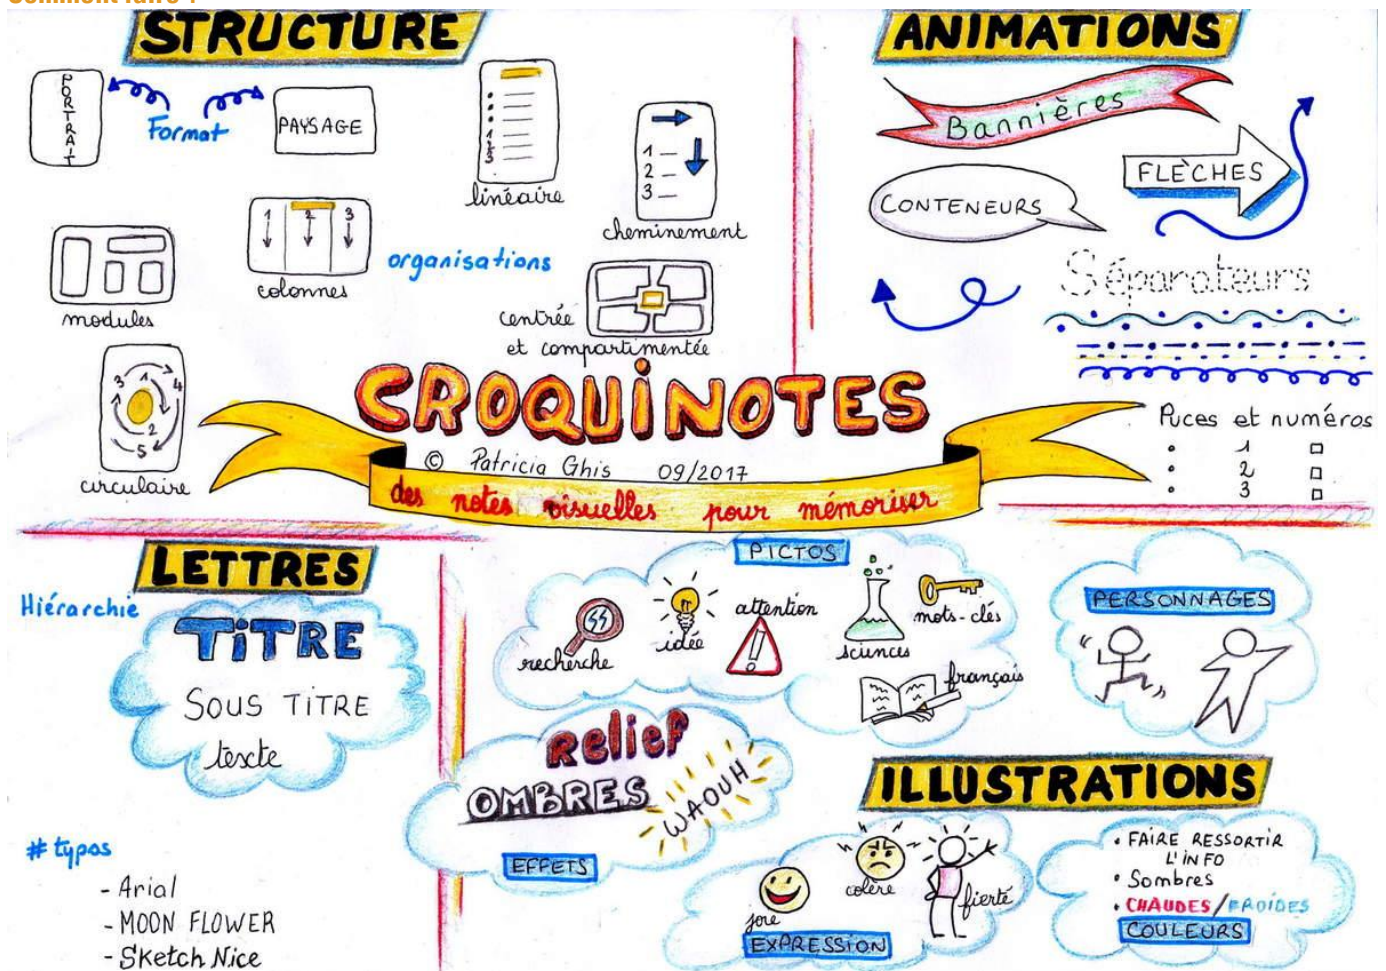 Comment faire ?
STRUCTURE
PORTRAIT
Format
PAYSAGE
1
2
3
linéaire
1
2
3
cheminement
modules
1 2 3
colonnes
organisations
centrée
et compartimentée
3 1 4
2
5
circulaire
ANIMATIONS
Bannières
CONTENEURS
FLÈCHES
Séparateurs
Puces et numéros
1
2
3
CROQUiNOTES
© Patricia Ghis 09/2017
des notes visuelles pour mémoriser
LETTRES
Hiérarchie
TiTRE
SOUS TiTRE
texte
# typos
- Arial
- MOON FLOWER
- Sketch Nice
PICTOS
recherche
idée
attention
sciences
mots-clés
français
Relief
OMBRES
WAOUH
EFFETS
PERSONNAGES
ILLUSTRATIONS
joie
colère
fierté
EXPRESSION
• FAIRE RESSORTIR
L'iNFO
• Sombres
• CHAUDES/FROiDES
COULEURS